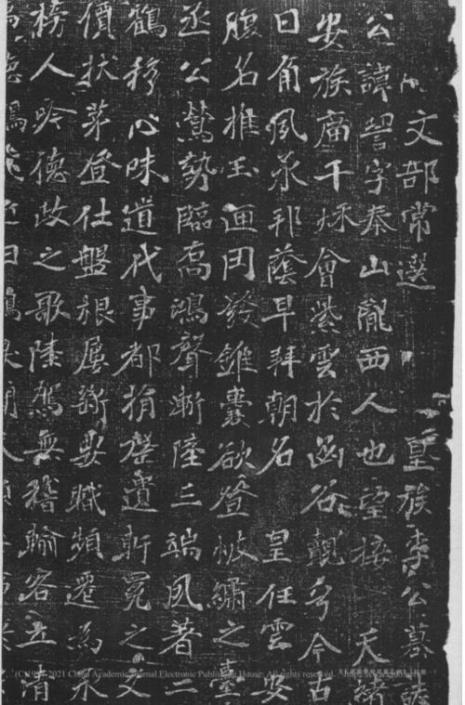 文部常選 皇族李公墓誌
公諱詧字泰山隴西人也望接 天緒
安族 會紫雲於函谷觀奇今古
日角夙承邦蔭早拜朝名 皇任雲安
腹名推玉 發錐囊欲登 繡之臺
丞公鷙勢臨高鴻聲漸陸三端夙著二
鶴移心味道代事都捐 遺軒冕之
價 茅登仕盤根屢斷要職頻遷為永
榜人吟德政之歌陸駕無稽輸容立清
(C)1994-2021 China Academic Journal Electronic Publishing House. All rights reserved.